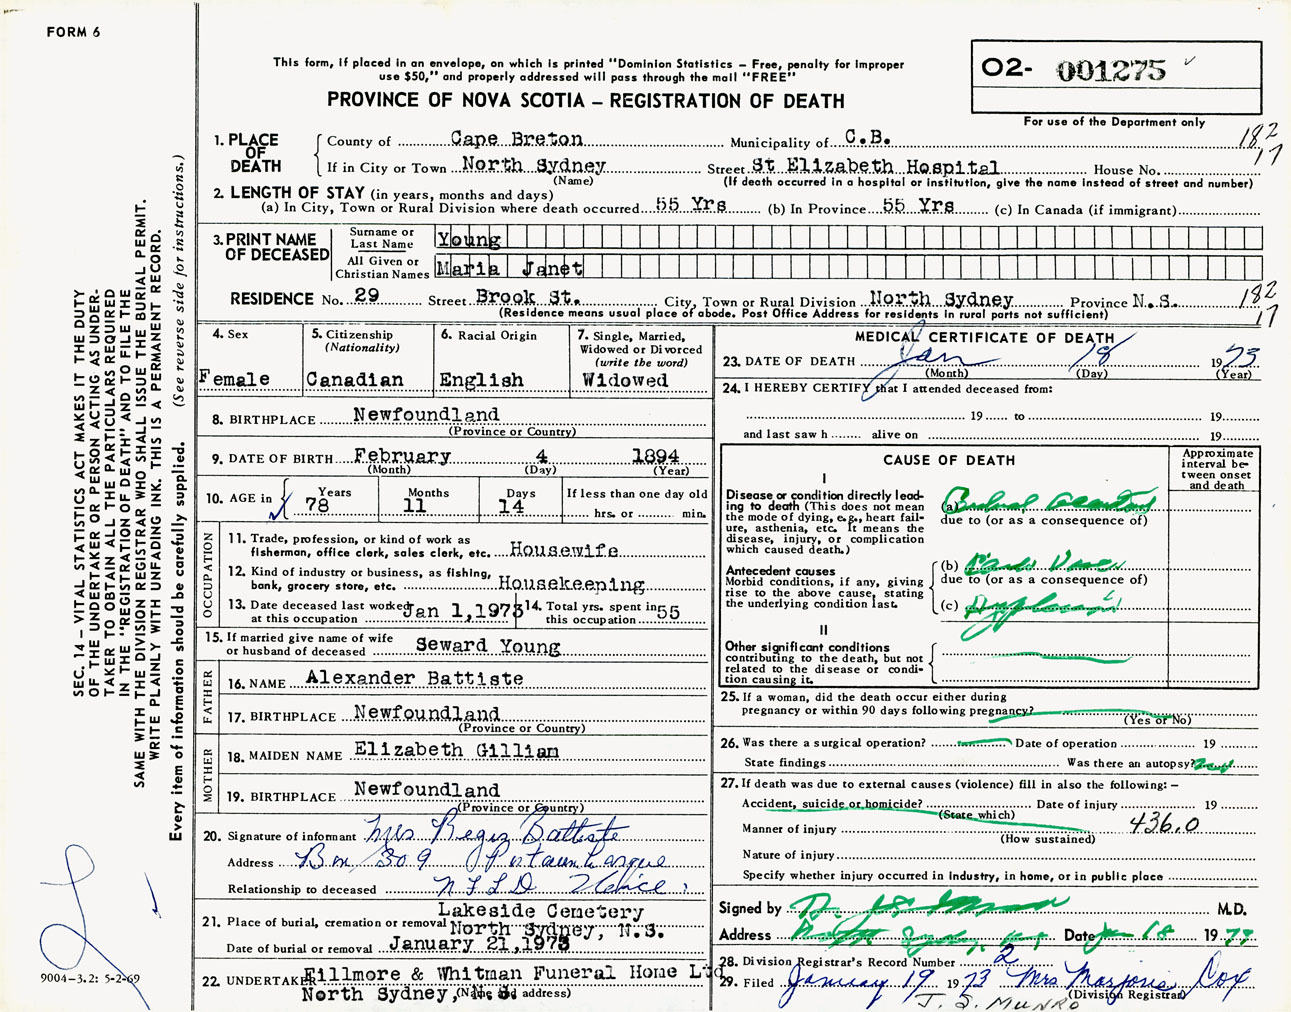 FORM 6
This form, if placed in an envelope, on which is printed "Dominion Statistics – Free, penalty for improper
use $50," and properly addressed will pass through the mail "FREE"
PROVINCE OF NOVA SCOTIA – REGISTRATION OF DEATH
O2- 001275
For use of the Department only
SEC. 14 – VITAL STATISTICS ACT MAKES IT THE DUTY
OF THE UNDERTAKER OR PERSON ACTING AS UNDER-
TAKER TO OBTAIN ALL THE PARTICULARS REQUIRED
IN THE "REGISTRATION OF DEATH" AND TO FILE THE
SAME WITH THE DIVISION REGISTRAR WHO SHALL ISSUE THE BURIAL PERMIT.
WRITE PLAINLY WITH UNFADING INK. THIS IS A PERMANENT RECORD.
Every item of information should be carefully supplied. (See reverse side for instructions.)
1. PLACE OF DEATH
County of Cape Breton Municipality of C.B.
182
17
If in City or Town North Sydney Street St Elizabeth Hospital House No.
(Name) (If death occurred in a hospital or institution, give the name instead of street and number)
2. LENGTH OF STAY (in years, months and days)
(a) In City, Town or Rural Division where death occurred 55 Yrs (b) In Province 55 Yrs (c) In Canada (if immigrant)
3. PRINT NAME OF DECEASED
Surname or Last Name Young
All Given or Christian Names Maria Janet
RESIDENCE No. 29 Street Brook St. City, Town or Rural Division North Sydney Province N.S.
182
17
(Residence means usual place of abode. Post Office Address for residents in rural parts not sufficient)
4. Sex
Female
5. Citizenship
(Nationality)
Canadian
6. Racial Origin
English
7. Single, Married,
Widowed or Divorced
(write the word)
Widowed
8. BIRTHPLACE Newfoundland
(Province or Country)
9. DATE OF BIRTH February 4 1894
(Month) (Day) (Year)
10. AGE in Years 78 Months 11 Days 14
If less than one day old
hrs. or min.
OCCUPATION
11. Trade, profession, or kind of work as
fisherman, office clerk, sales clerk, etc. Housewife
12. Kind of industry or business, as fishing,
bank, grocery store, etc. Housekeeping
13. Date deceased last worked
at this occupation Jan 1,1973
14. Total yrs. spent in
this occupation 55
15. If married give name of wife
or husband of deceased Seward Young
FATHER
16. NAME Alexander Battiste
17. BIRTHPLACE Newfoundland
(Province or Country)
MOTHER
18. MAIDEN NAME Elizabeth Gillian
19. BIRTHPLACE Newfoundland
(Province or Country)
20. Signature of informant Mrs Battiste
Address Box 309
Relationship to deceased NFLD Niece
21. Place of burial, cremation or removal Lakeside Cemetery
North Sydney, N.S.
Date of burial or removal January 21,1973
22. UNDERTAKER Fillmore & Whitman Funeral Home Ltd
North Sydney, N. S.
(Name and address)
9004–3.2: 5-2-69
MEDICAL CERTIFICATE OF DEATH
23. DATE OF DEATH Jan 18 1973
(Month) (Day) (Year)
24. I HEREBY CERTIFY that I attended deceased from:
19 to 19
and last saw h alive on 19
CAUSE OF DEATH
Approximate
interval be-
tween onset
and death
I
Disease or condition directly lead-
ing to death (This does not mean
the mode of dying, e.g., heart fail-
ure, asthenia, etc. It means the
disease, injury, or complication
which caused death.)
(a)
due to (or as a consequence of)
Antecedent causes
Morbid conditions, if any, giving
rise to the above cause, stating
the underlying condition last.
(b)
due to (or as a consequence of)
(c)
II
Other significant conditions
contributing to the death, but not
related to the disease or condi-
tion causing it.
25. If a woman, did the death occur either during
pregnancy or within 90 days following pregnancy?
(Yes or No)
26. Was there a surgical operation? Date of operation 19
State findings Was there an autopsy?
27. If death was due to external causes (violence) fill in also the following: –
Accident, suicide or homicide? Date of injury 19
(State which)
Manner of injury 436.0
(How sustained)
Nature of injury
Specify whether injury occurred in industry, in home, or in public place
Signed by M.D.
Address Date Jan 18 1973
28. Division Registrar's Record Number 2
29. Filed January 19 1973 Mrs Marjorie Cox
(Division Registrar)
J. S. MUNRO